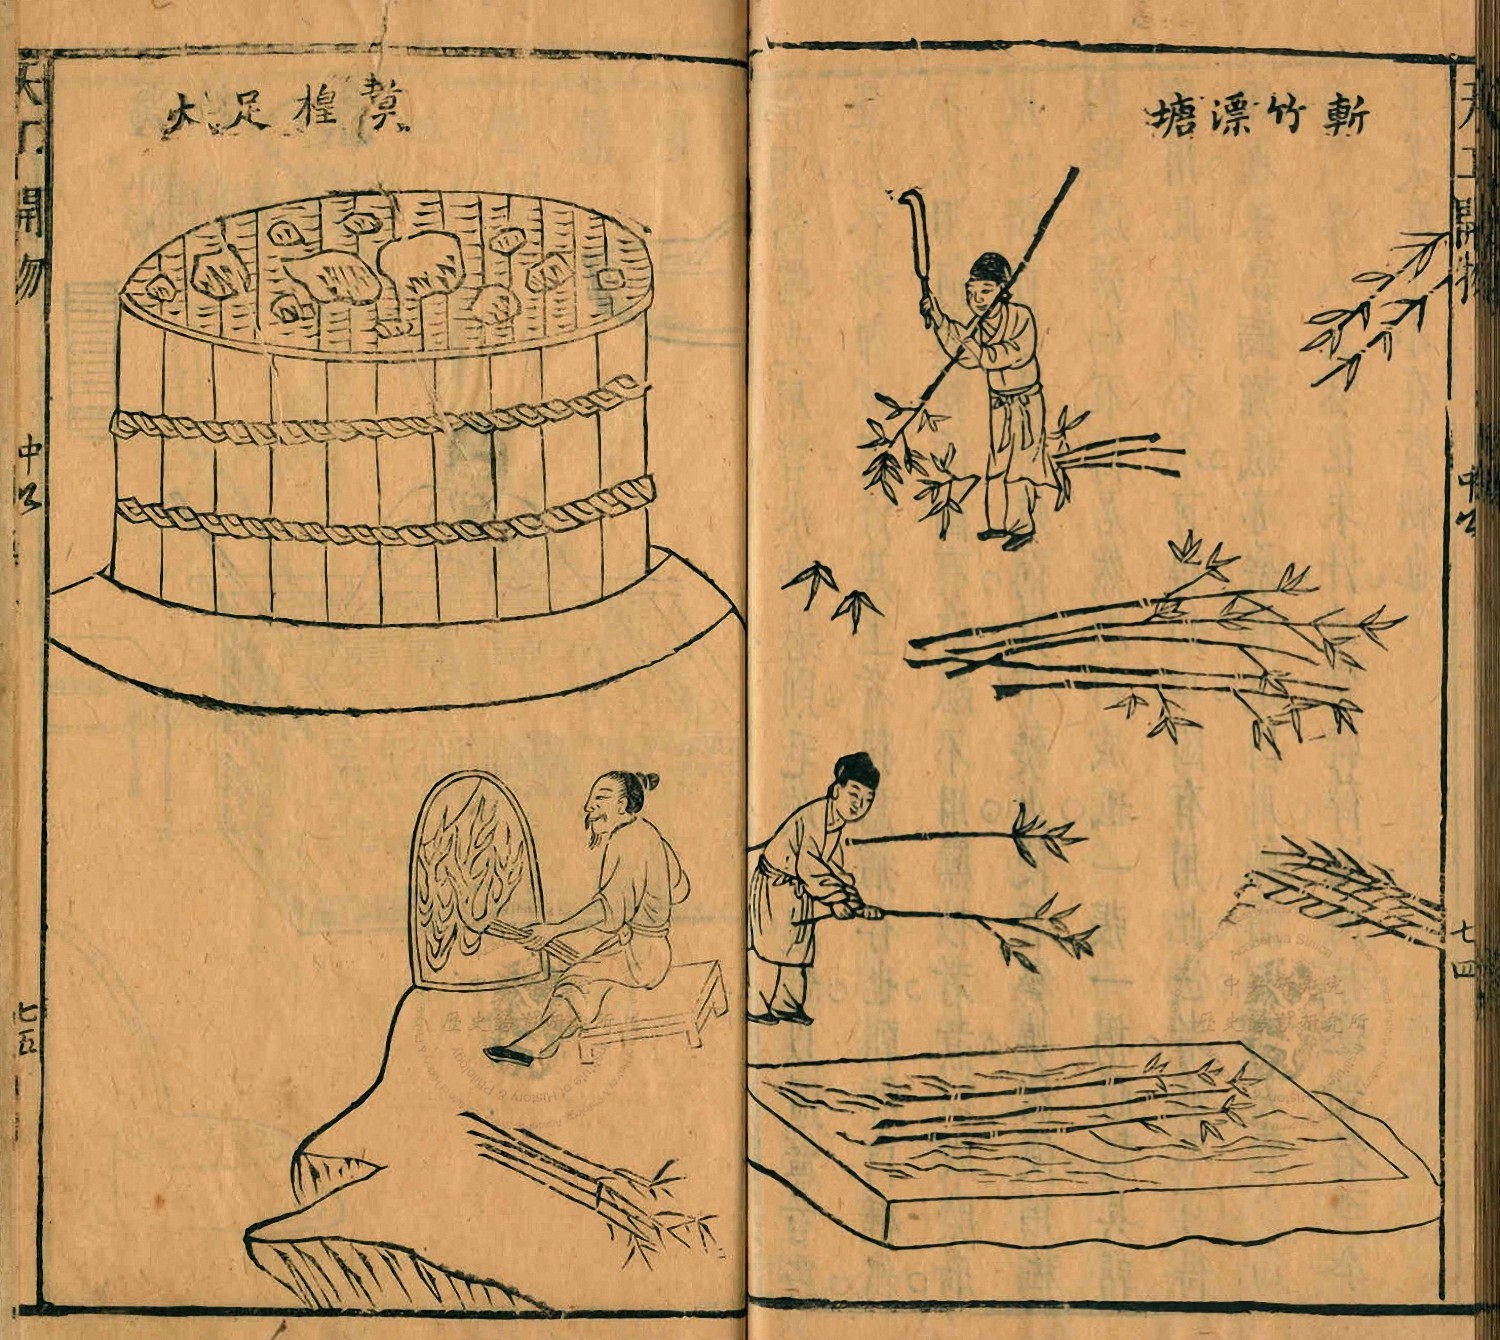 天工開物
中
七四
斬竹漂塘
煮楻足火
天工開物
中
七五
中央研究院
歷史語言研究所
Academia Sinica
歷史語言研究所
Institute of History & Philology